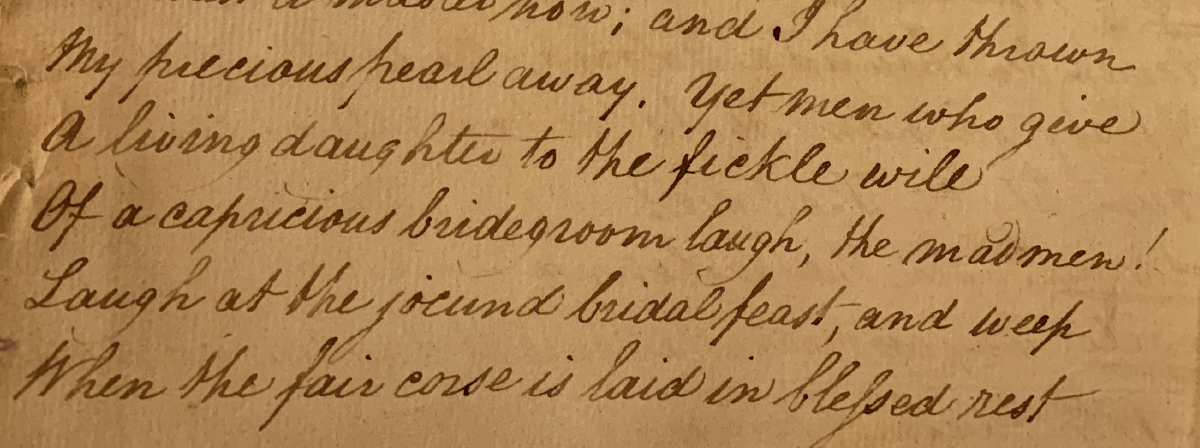 a master now; and I have thrown
My precious pearl away. Yet men who give
A living daughter to the fickle wile
Of a capricious bridegroom laugh, the madmen!
Laugh at the jocund bridal feast, and weep
When the fair corse is laid in bleſsed rest